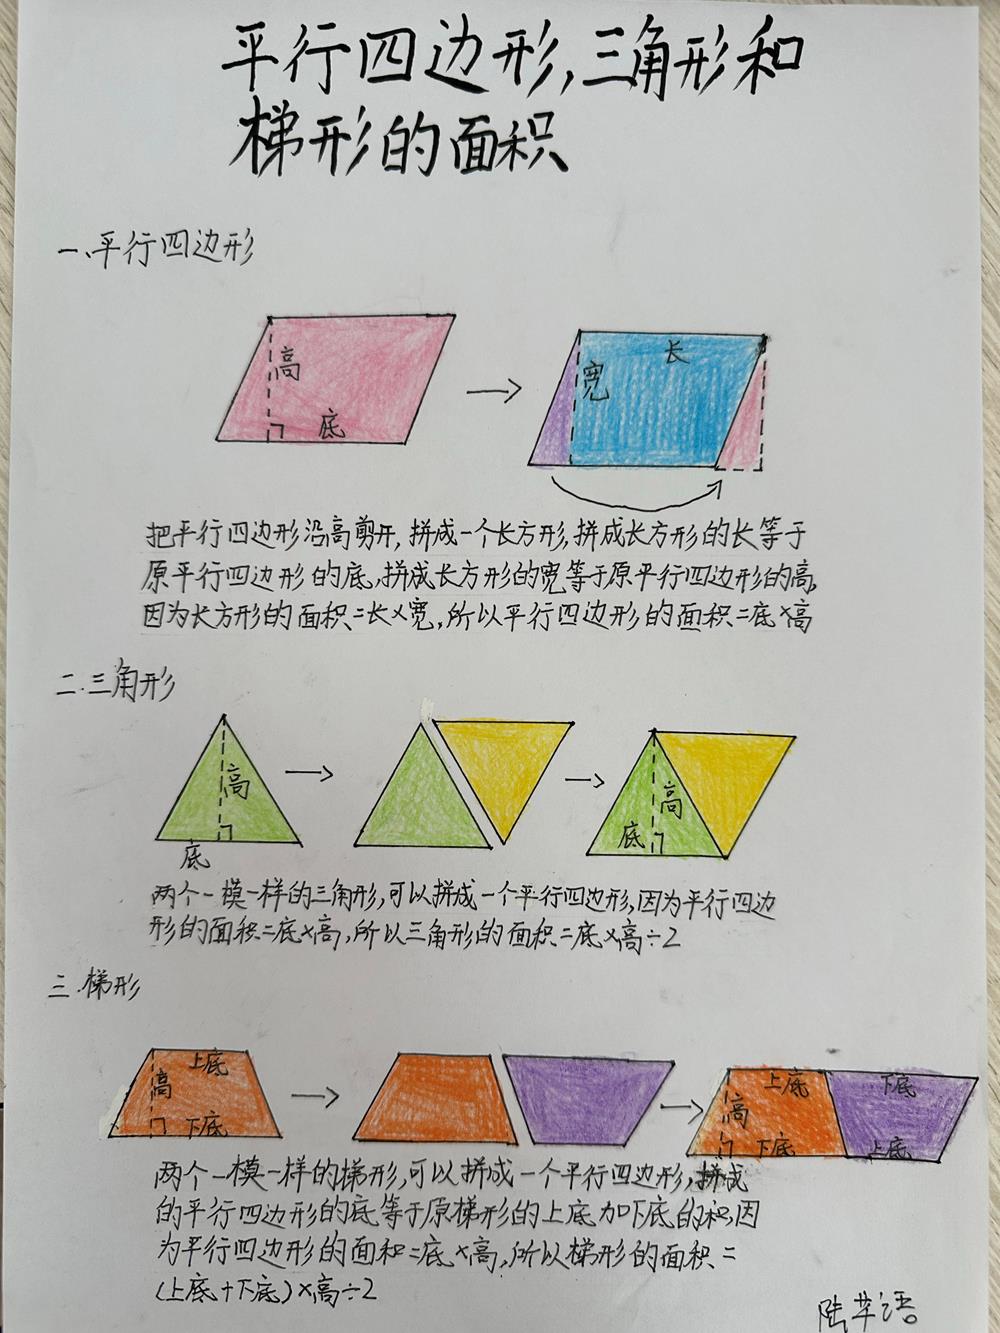 平行四边形,三角形和
梯形的面积
一.平行四边形
高
底
长
宽
把平行四边形沿高剪开,拼成一个长方形,拼成长方形的长等于
原平行四边形的底,拼成长方形的宽等于原平行四边形的高,
因为长方形的面积=长×宽,所以平行四边形的面积=底×高
二.三角形
高
底
高
底
两个一模一样的三角形,可以拼成一个平行四边形,因为平行四边
形的面积=底×高,所以三角形的面积=底×高÷2
三.梯形
上底
高
下底
上底
下底
高
下底
上底
两个一模一样的梯形,可以拼成一个平行四边形,拼成
的平行四边形的底等于原梯形的上底加下底的积,因
为平行四边形的面积=底×高,所以梯形的面积=
(上底+下底)×高÷2
陆 语